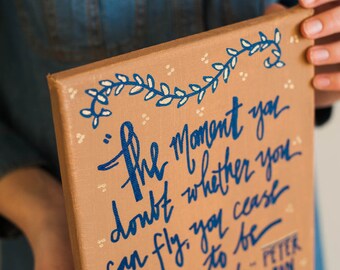 "The moment you
doubt whether you
can fly, you cease
to be
- PETER